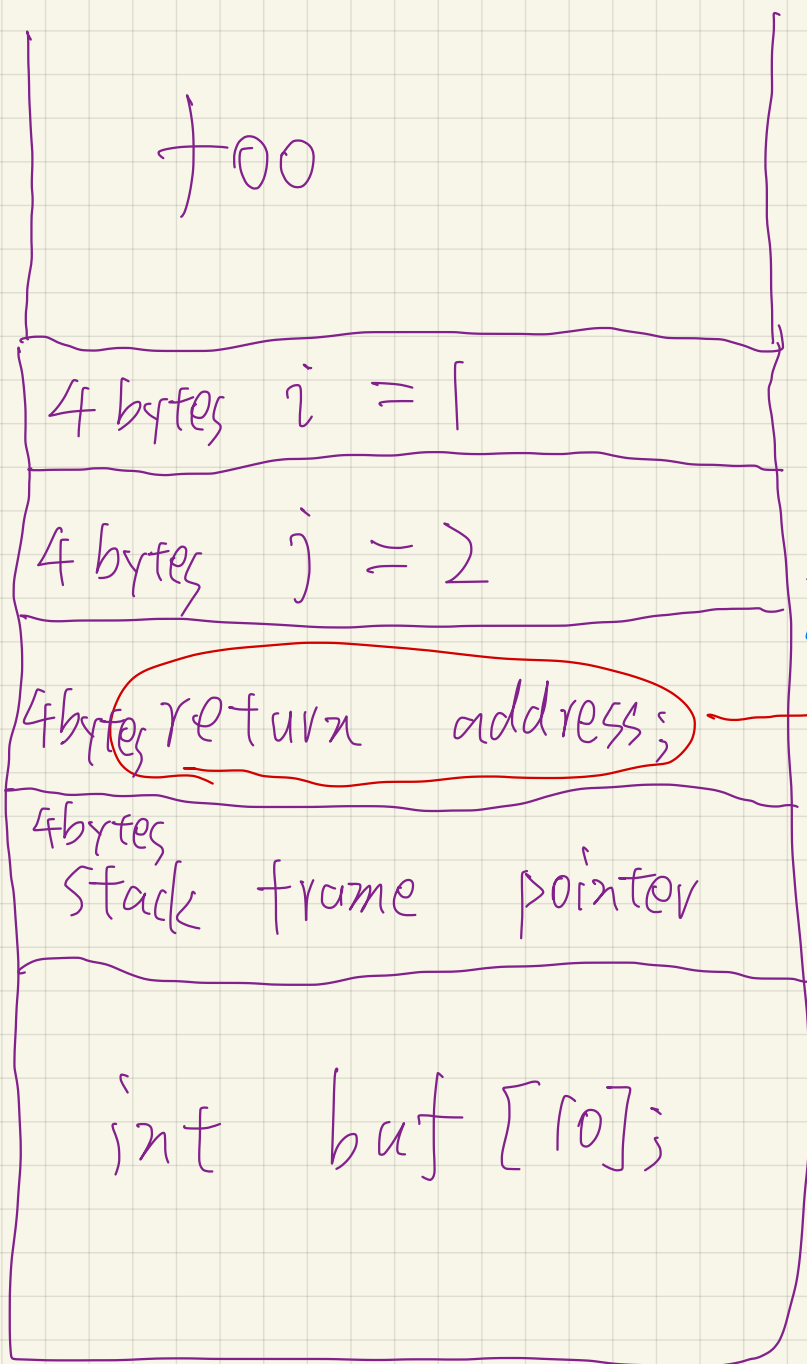 foo
4 bytes i = 1
4 bytes j = 2
4bytes return address;
4bytes
Stack frame pointer
int buf [10];